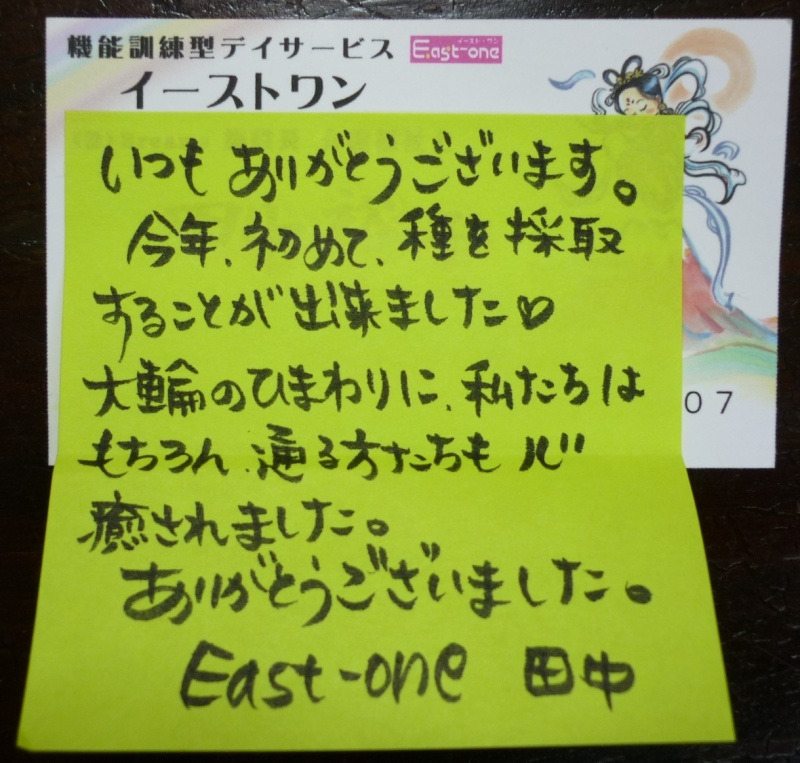 機能訓練型デイサービス
イースト・ワン
East-one
イーストワン
いつもありがとうございます。
今年、初めて、種を採取
することが出来ました♡
大輪のひまわりに、私たちは
もちろん、通る方たちも心
癒されました。
ありがとうございました。
East-one 田中
07